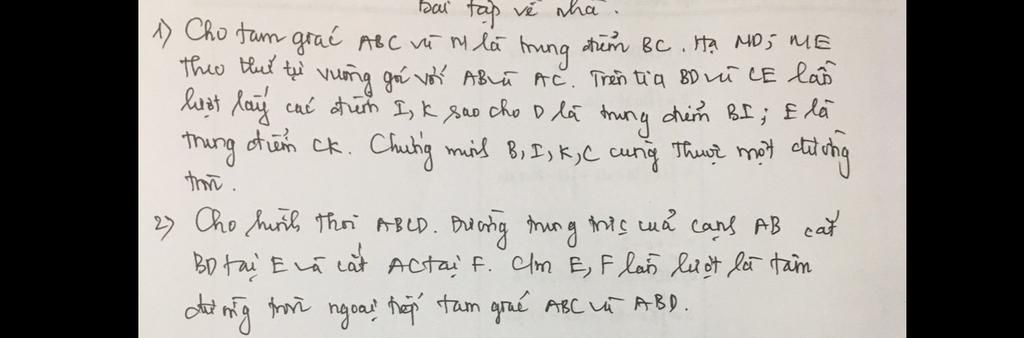 Bài tập về nhà.
1) Cho tam giác ABC và M là trung điểm BC. Hạ MD; ME
theo thứ tự vuông góc với AB và AC. Trên tia BD và CE lần
lượt lấy các điểm I, K sao cho D là trung điểm BI; E là
trung điểm CK. Chứng minh B, I, K, C cùng thuộc một đường
tròn.
2) Cho hình thoi ABCD. Đường trung trực của cạnh AB cắt
BD tại E và cắt AC tại F. C/m E, F lần lượt là tâm
đường tròn ngoại tiếp tam giác ABC và ABD.